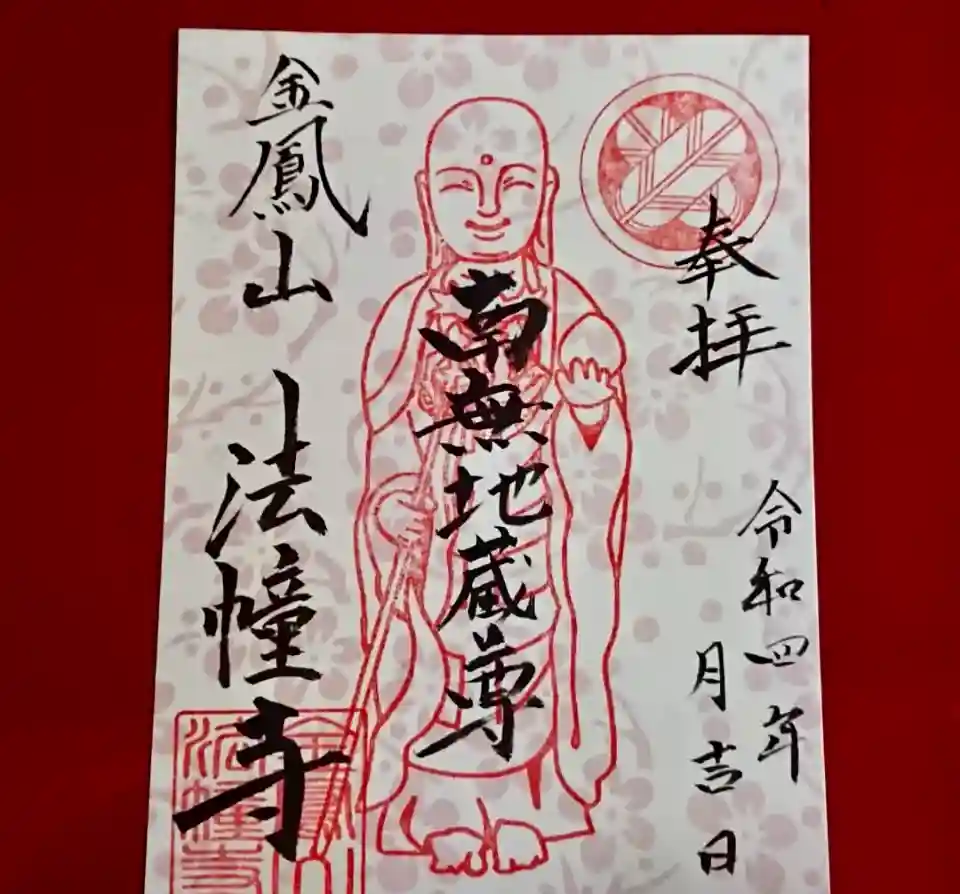 奉拝
令和四年
月吉日
南無地蔵尊
金鳳山 法幢寺
金鳳山
法幢寺